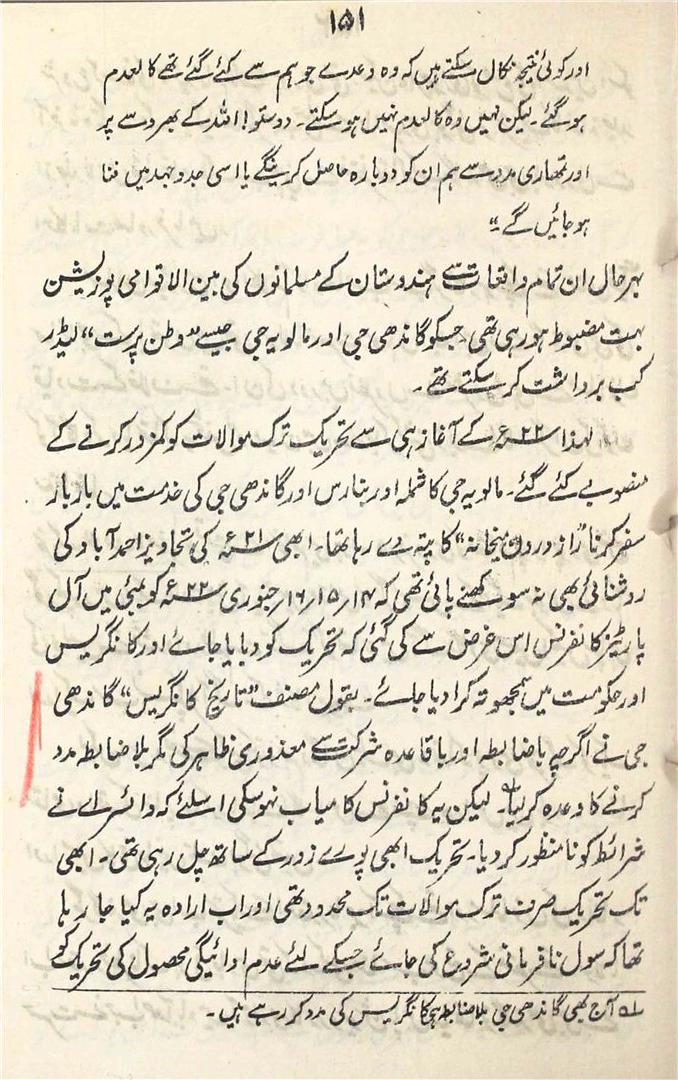 ۱۵۱
اور کوئی نتیجہ نکال سکتے ہیں کہ وہ وعدے جو ہم سے کئے گئے تھے کالعدم
ہوگئے۔ لیکن نہیں وہ کالعدم نہیں ہوسکتے۔ دوستو! اللہ کے بھروسے پر
اور تمھاری مدد سے ہم ان کو دوبارہ حاصل کرینگے یا اسی جدوجہد میں فنا
ہوجائیں گے۔“
بہرحال ان تمام واقعات سے ہندوستان کے مسلمانوں کی بین الاقوامی پوزیشن
بہت مضبوط ہو رہی تھی جسکو گاندھی جی اور مالویہ جی جیسے ”وطن پرست“ لیڈر
کب برداشت کرسکتے تھے۔
لہذا ۲۲ء کے آغاز ہی سے تحریک ترک موالات کو کمزور کرنے کے
منصوبے کئے گئے۔ مالویہ جی کا شملہ اور بنارس اور گاندھی جی کی خدمت میں باربار
سفر کرنا ”راز درون میخانہ“ کا پتہ دے رہا تھا۔ ابھی ۲۱ء کی تجاویز احمدآباد کی
روشنائی بھی نہ سوکھنے پائی تھی کہ ۱۴، ۱۵، ۱۶ جنوری ۲۲ء کو بمبئی میں آل
پارٹیز کانفرنس اس غرض سے کی گئی کہ تحریک کو دبایا جائے اور کانگریس
اور حکومت میں سمجھوتہ کرا دیا جائے۔ بقول مصنف ”تاریخ کانگریس“ گاندھی
جی نے اگرچہ باضابطہ اور باقاعدہ شرکت سے معذوری ظاہر کی مگر بلاضابطہ مدد
کرنے کا وعدہ کرلیا۔ لیکن یہ کانفرنس کامیاب نہوسکی اسلئے کہ وائسرائے نے
شرائط کو نامنظور کردیا۔ تحریک ابھی پورے زور کے ساتھ چل رہی تھی۔ ابھی
تک تحریک صرف ترک موالات تک محدود تھی اور اب ارادہ یہ کیا جا رہا
تھا کہ سول نافرمانی شروع کی جائے جسکے لئے عدم ادائیگی محصول کی تحریک کو
لہ آج بھی گاندھی جی بلاضابطہ ہی کانگریس کی مدد کر رہے ہیں۔